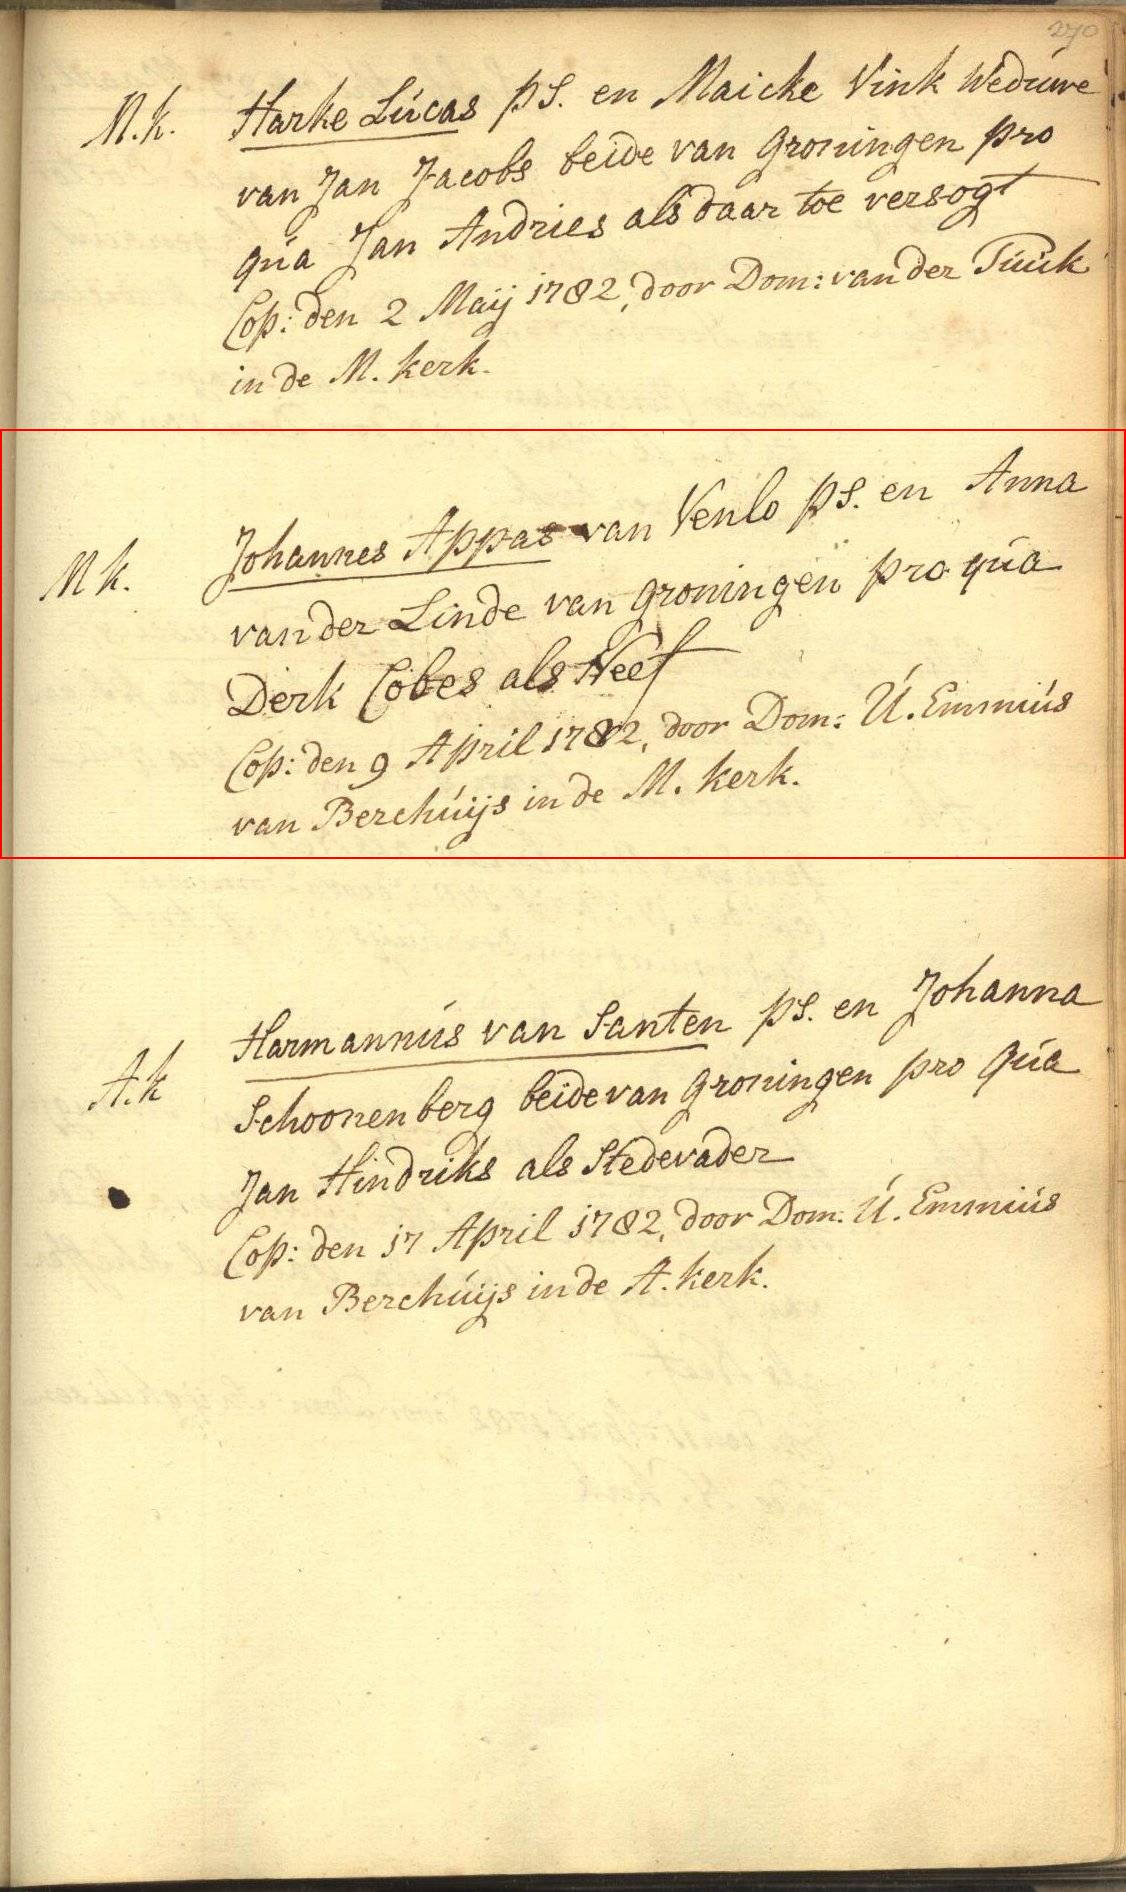 270
M.k. Harke Lúcas pS. en Maicke Vink Wedúwe
van Jan Jacobs beide van Groningen pro
qúa Jan Andries als daar toe versogt
Cop: den 2 Maij 1782, door Dom: van der Túúk
in de M. kerk.
Johannes Appas van Venlo pS. en Anna
M k. van der Linde van Groningen pro qúa
Derk Cobes als Neef
Cop: den 9 April 1782, door Dom: Ú. Emmiús
van Berchúijs in de M. kerk.
Harmannús van Santen pS. en Johanna
A.k Schoonenberg beide van Groningen pro qúa
Jan Hindriks als Stedevader
Cop: den 17 April 1782, door Dom: Ú. Emmiús
van Berchúijs in de A. kerk.